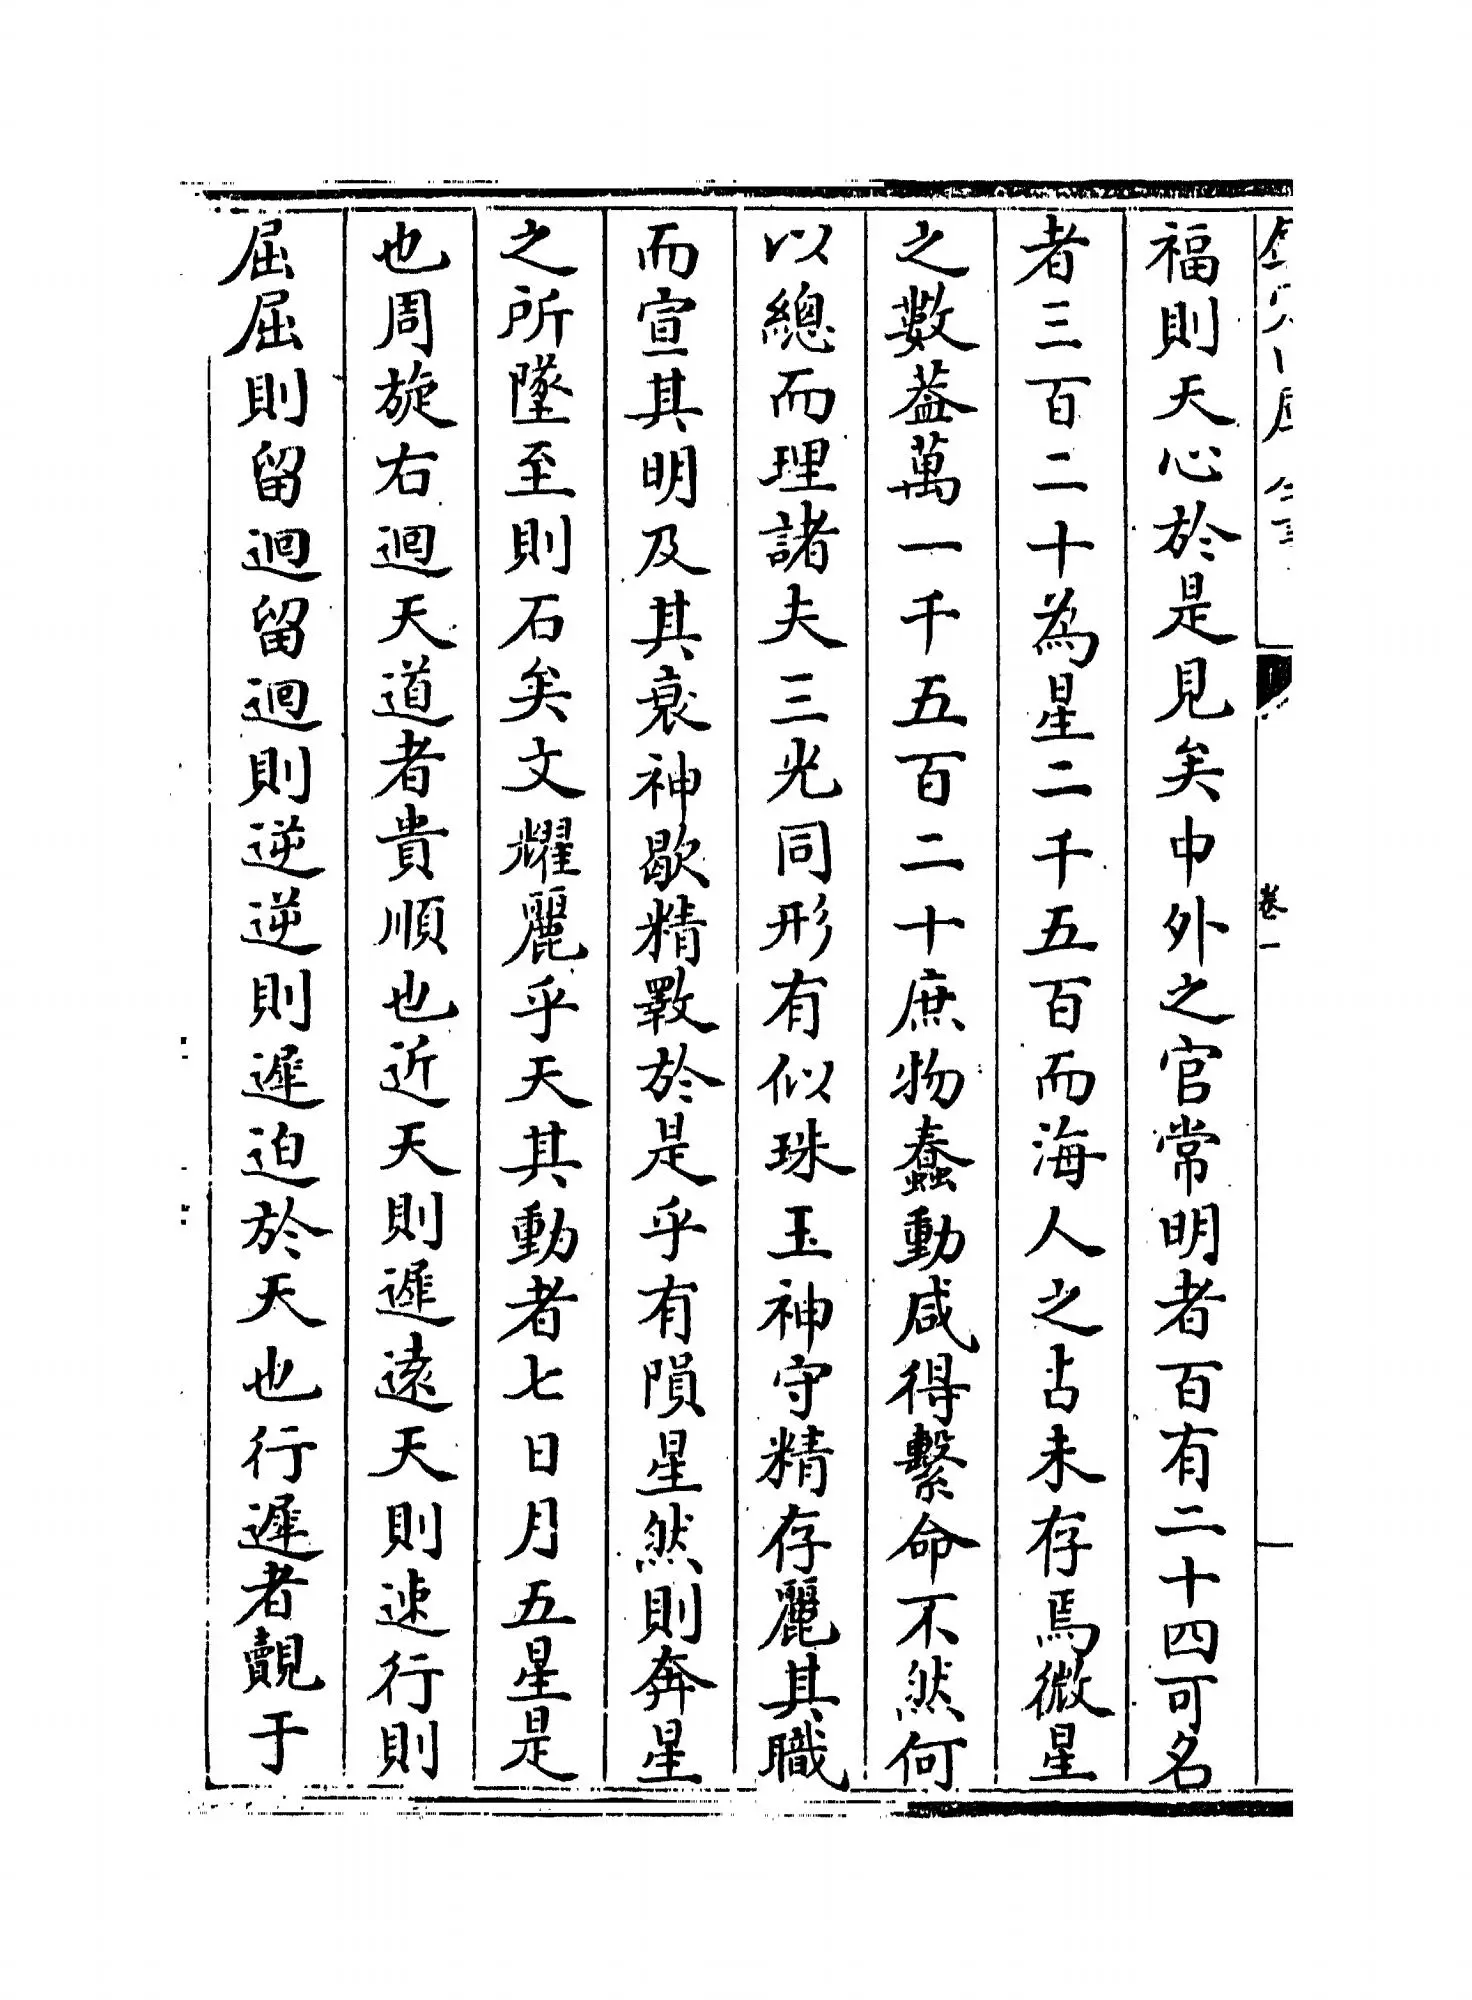 福則天心於是見矣中外之官常明者百有二十四可名
者三百二十為星二千五百而海人之占未存焉微星
之數葢萬一千五百二十庶物蠢動咸得繫命不然何
以總而理諸夫三光同形有似珠玉神守精存麗其職
而宣其明及其衰神歇精斁於是乎有隕星然則奔星
之所墜至則石矣文耀麗乎天其動者七日月五星是
也周旋右迴天道者貴順也近天則遲遠天則速行則
屈屈則留迴留迴則逆逆則遲迫於天也行遲者覿于
卷一